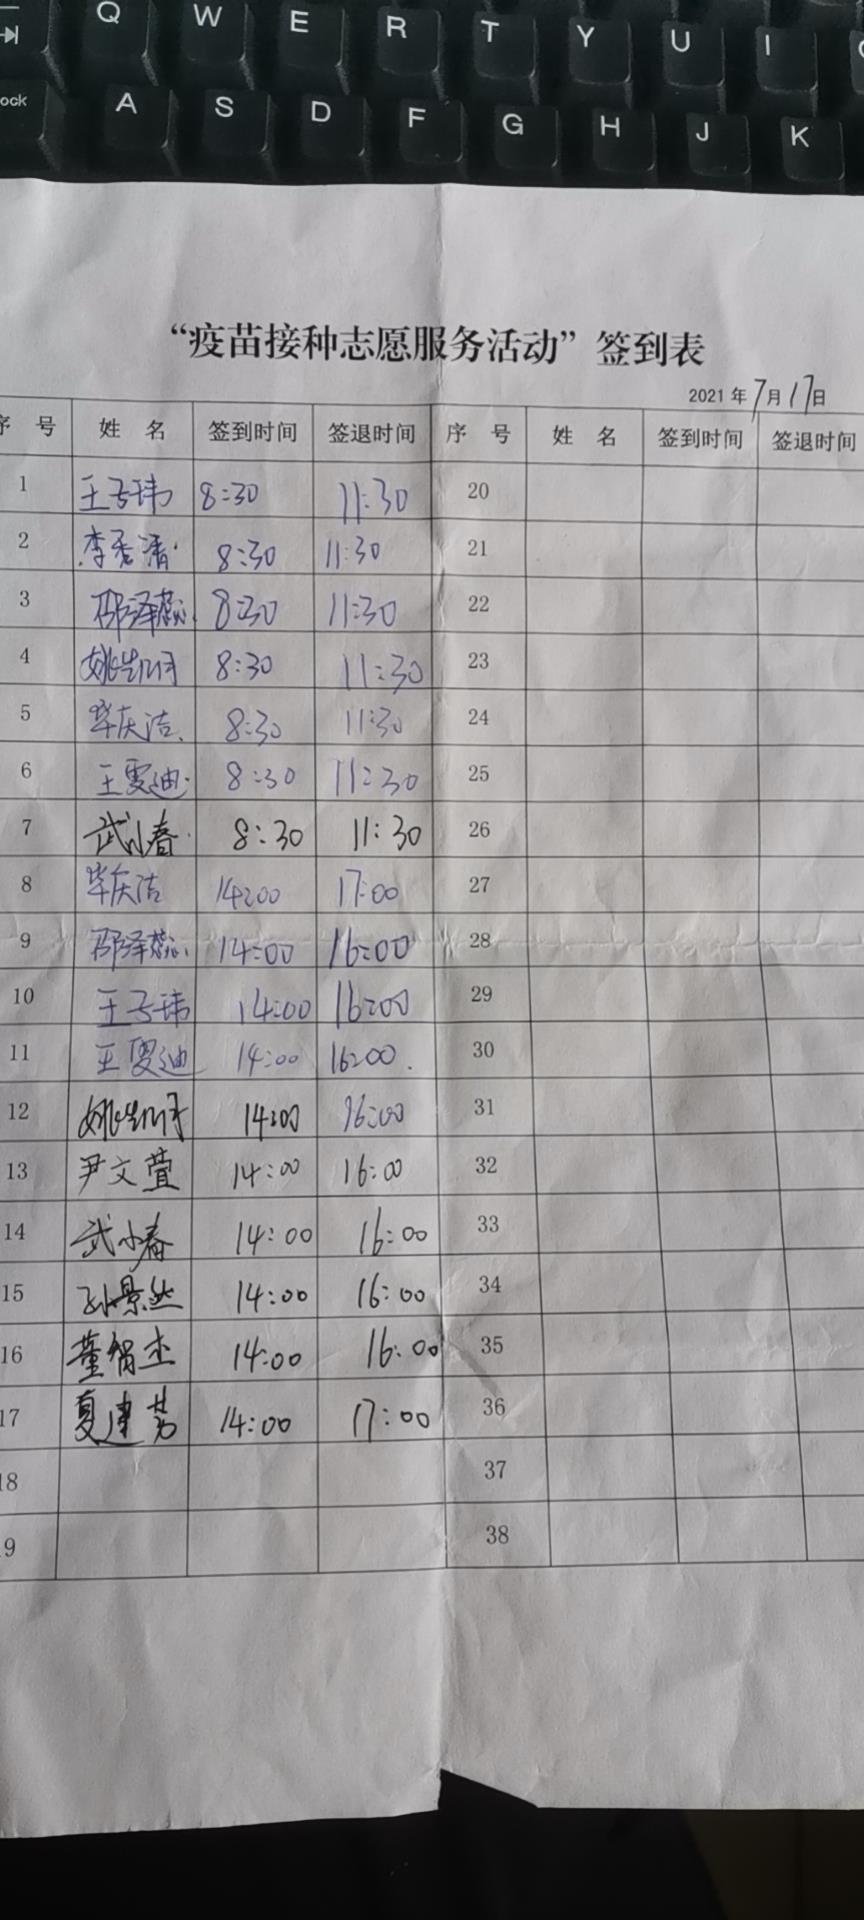 Q W E R T Y U I
ock A S D F G H J K
“疫苗接种志愿服务活动”签到表
2021年7月17日
序 号 姓 名 签到时间 签退时间 序 号 姓 名 签到时间 签退时间
1 王子玮 8:30 11:30 20
2 李香清 8:30 11:30 21
3 邵泽蕊 8:30 11:30 22
4 姚 8:30 11:30 23
5 毕庆洁 8:30 11:30 24
6 王雯迪 8:30 11:30 25
7 武小春 8:30 11:30 26
8 毕庆洁 14:00 17:00 27
9 邵泽蕊 14:00 16:00 28
10 王子玮 14:00 16:00 29
11 王雯迪 14:00 16:00 30
12 姚 14:00 16:00 31
13 尹文萱 14:00 16:00 32
14 武小春 14:00 16:00 33
15 孙景然 14:00 16:00 34
16 董智杰 14:00 16:00 35
17 夏建芳 14:00 17:00 36
18 37
19 38